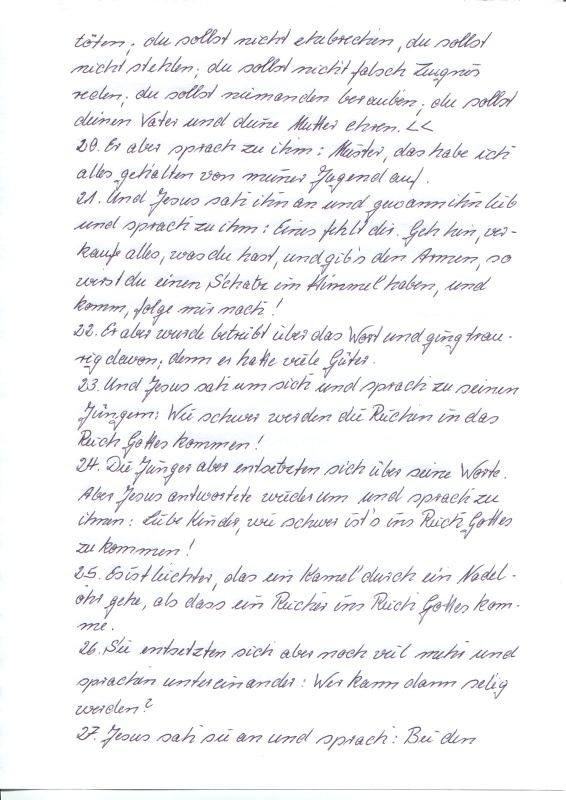 töten; du sollst nicht ehebrechen, du sollst
nicht stehlen; du sollst nicht falsch Zeugnis
reden; du sollst niemanden berauben; du sollst
deinen Vater und deine Mutter ehren.<<
20. Er aber sprach zu ihm: Meister, das habe ich
alles gehalten von meiner Jugend auf.
21. Und Jesus sah ihn an und gewann ihn lieb
und sprach zu ihm: Eines fehlt dir. Geh hin, ver-
kaufe alles, was du hast, und gib's den Armen, so
wirst du einen Schatz im Himmel haben, und
komm, folge mir nach!
22. Er aber wurde betrübt über das Wort und ging trau-
rig davon; denn er hatte viele Güter.
23. Und Jesus sah um sich und sprach zu seinen
Jüngern: Wie schwer werden die Reichen in das
Reich Gottes kommen!
24. Die Jünger aber entsetzten sich über seine Worte.
Aber Jesus antwortete wiederum und sprach zu
ihnen: Liebe Kinder, wie schwer ist's ins Reich Gottes
zu kommen!
25. Es ist leichter, das ein Kamel durch ein Nadel-
öhr gehe, als dass ein Reicher ins Reich Gottes kom-
me.
26. Sie entsetzten sich aber noch viel mehr und
sprachen untereinander: Wer kann dann selig
werden?
27. Jesus sah sie an und sprach: Bei den